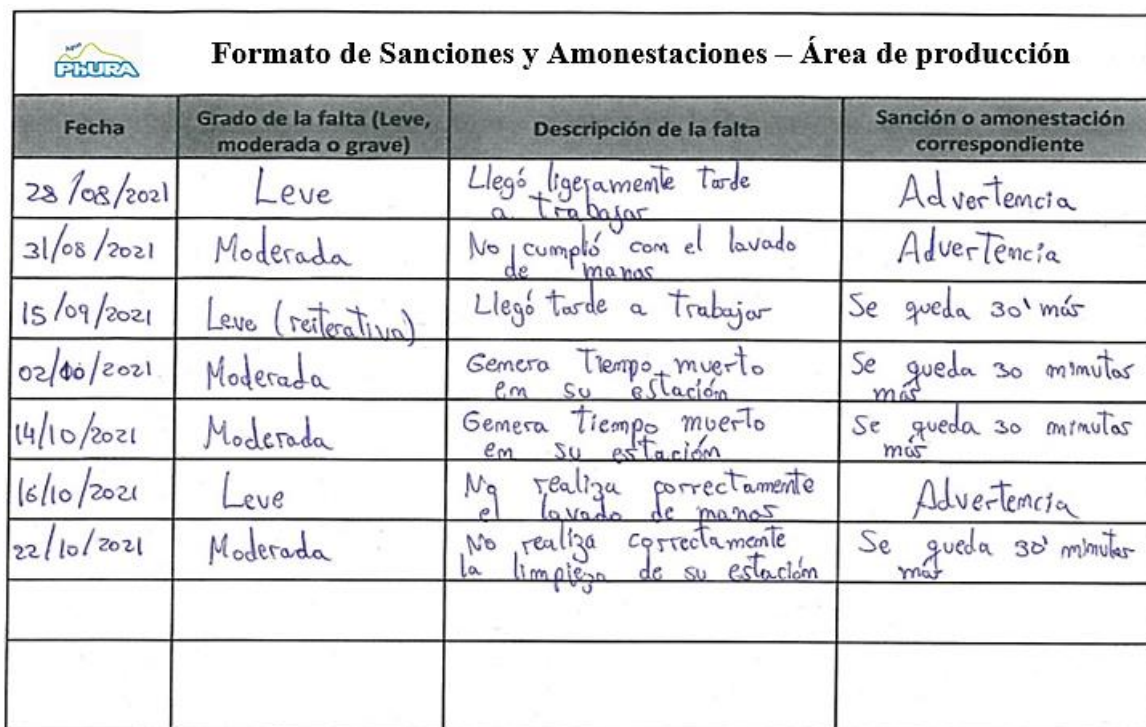 Agua
PhURA
Formato de Sanciones y Amonestaciones – Área de producción
Fecha
Grado de la falta (Leve,
moderada o grave)
Descripción de la falta
Sanción o amonestación
correspondiente
28/08/2021
Leve
Llegó ligeramente tarde
a trabajar
Advertencia
31/08/2021
Moderada
No cumpló con el lavado
de manos
Advertencia
15/09/2021
Leve (reiterativa)
Llegó tarde a trabajar
Se queda 30' más
02/10/2021
Moderada
Genera tiempo muerto
en su estación
Se queda 30 minutos
más
14/10/2021
Moderada
Genera tiempo muerto
en su estación
Se queda 30 minutos
más
16/10/2021
Leve
No realiza correctamente
el lavado de manos
Advertencia
22/10/2021
Moderada
No realiza correctamente
la limpieza de su estación
Se queda 30' minutos
más